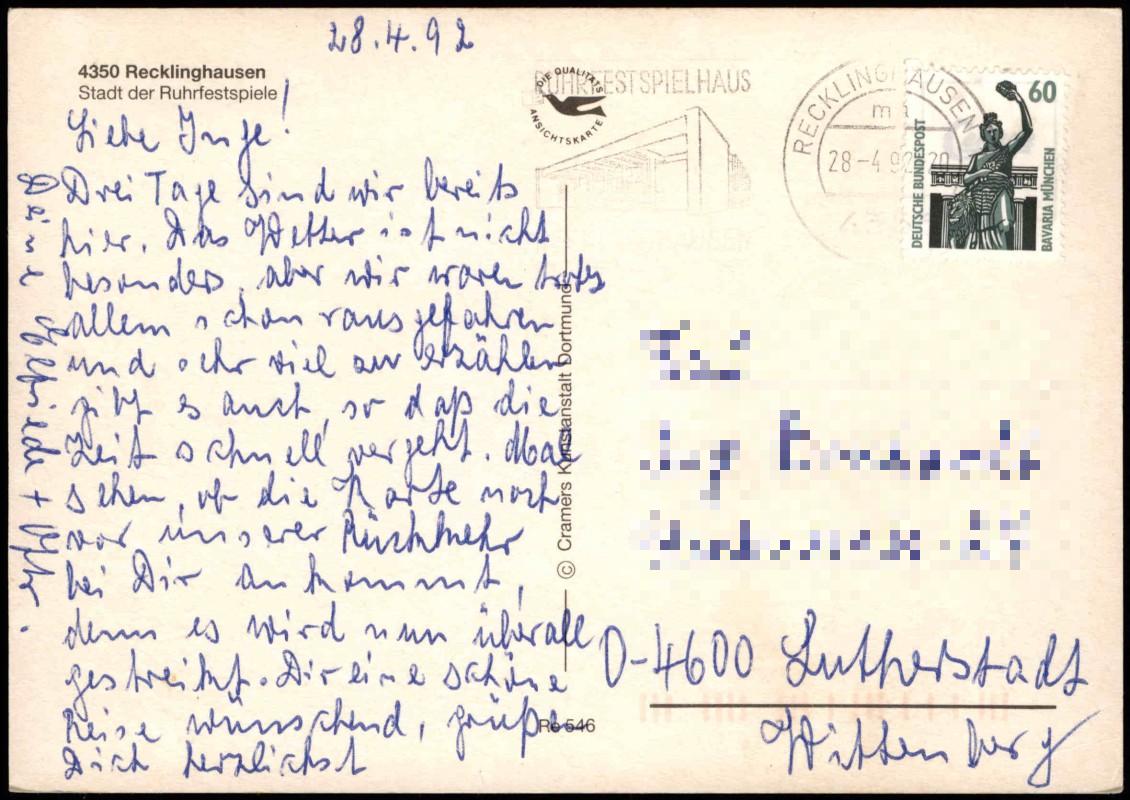 28.4.92
4350 Recklinghausen
Stadt der Ruhrfestspiele
Liebe Inge!
Drei Tage sind wir bereits
hier. Das Wetter ist nicht
besonders, aber wir waren trotz
allem schon rausgefahren
und sehr viel zu erzählen
gibt es auch, so daß die
Zeit schnell vergeht. Mal
sehen, ob die Karte noch
vor unserer Rückkehr
bei Dir ankommt,
denn es wird nun überall
gestreikt. Dir eine schöne
Reise wünschend, grüße
Dich herzlichst
Deine Elfriede +
DIE QUALITÄTS
ANSICHTSKARTE
RUHRFESTSPIELHAUS
RECKLINGHAUSEN
28-4.92-20
60
DEUTSCHE BUNDESPOST
BAVARIA MÜNCHEN
© Cramers Kunstanstalt Dortmund
Re 546
D-4600 Lutherstadt
Wittenberg